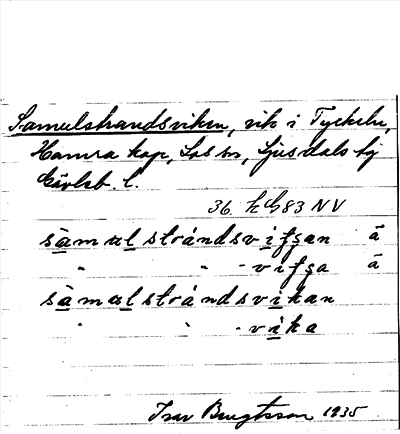 Samulstrandsviken, vik i Tyckeln,
Hamra kap, Los sn, Ljusdals tg
Gävleb. l.
36. k G83 NV
sàmulstrándsvifgan ā
" " - vifga ā
sàmulstrándsvikan
" " - vika
Ivar Bengtsson 1935